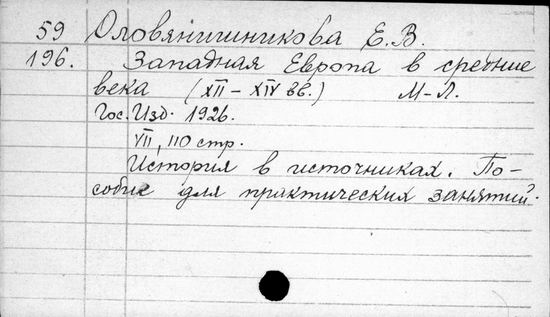 59 Оловянишникова Е.В.
196. Западная Европа в средние
века (XII – XIV вв.) М-Л.
Гос. Изд. 1926.
VII, 110 стр.
История в источниках. По-
собие для практических занятий.